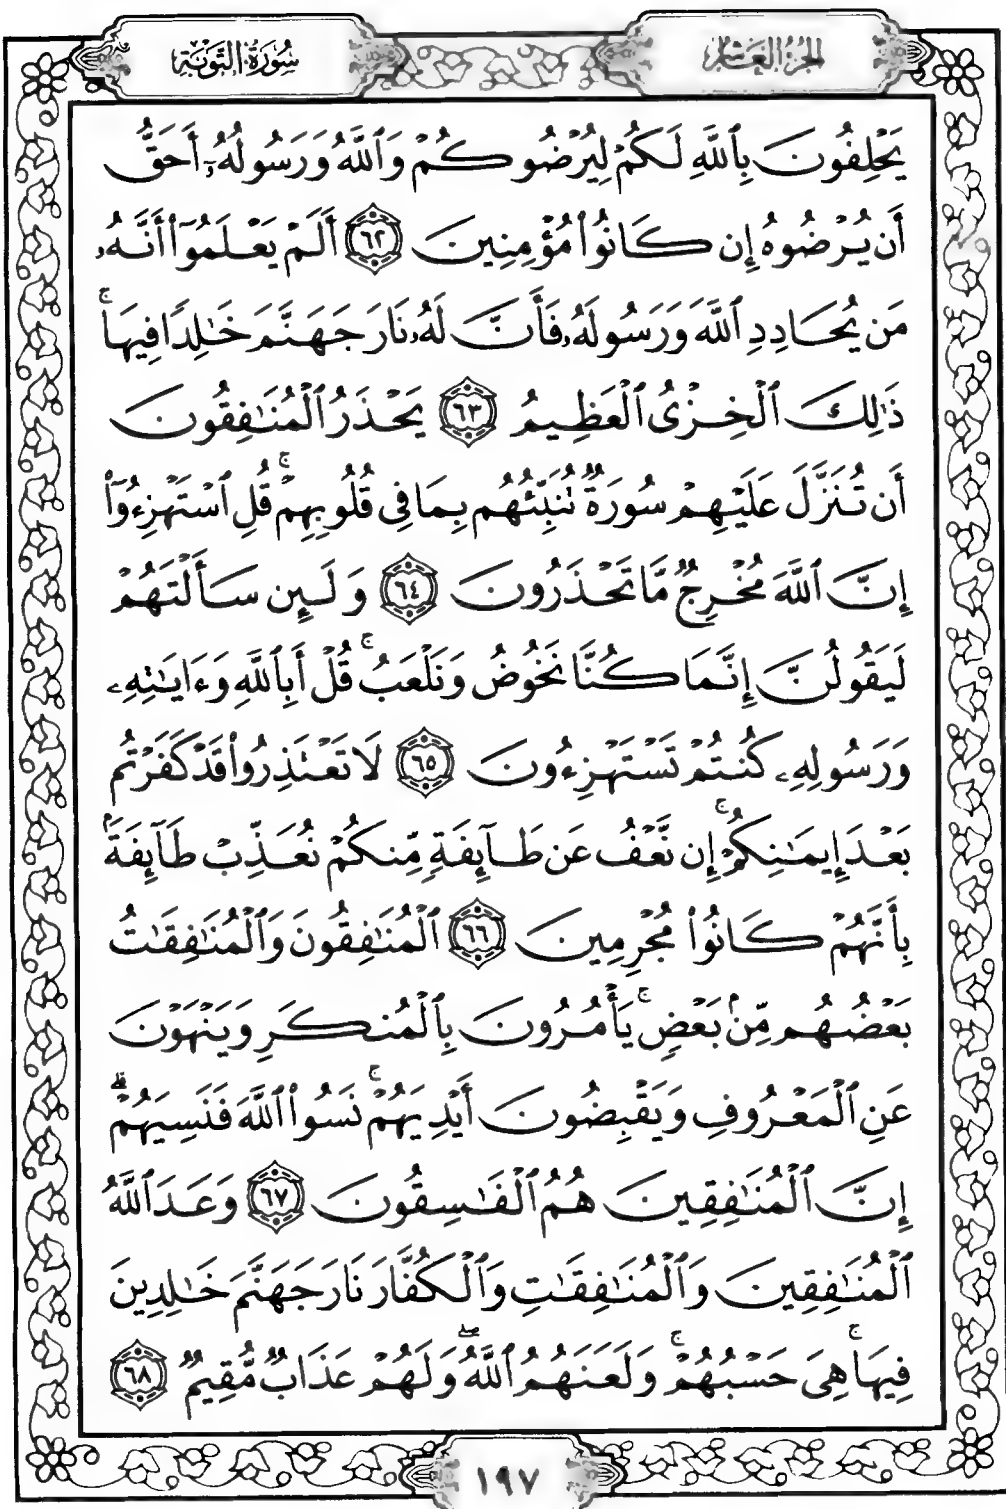 الجزء العاشر
سورة التوبة
يَحْلِفُونَ بِٱللَّهِ لَكُمْ لِيُرْضُوكُمْ وَٱللَّهُ وَرَسُولُهُۥٓ أَحَقُّ
أَن يُرْضُوهُ إِن كَانُوا۟ مُؤْمِنِينَ ٦٢ أَلَمْ يَعْلَمُوٓا۟ أَنَّهُۥ
مَن يُحَادِدِ ٱللَّهَ وَرَسُولَهُۥ فَأَنَّ لَهُۥ نَارَ جَهَنَّمَ خَـٰلِدًا فِيهَا ۚ
ذَٰلِكَ ٱلْخِزْىُ ٱلْعَظِيمُ ٦٣ يَحْذَرُ ٱلْمُنَـٰفِقُونَ
أَن تُنَزَّلَ عَلَيْهِمْ سُورَةٌ تُنَبِّئُهُم بِمَا فِى قُلُوبِهِمْ ۚ قُلِ ٱسْتَهْزِءُوٓا۟
إِنَّ ٱللَّهَ مُخْرِجٌ مَّا تَحْذَرُونَ ٦٤ وَلَئِن سَأَلْتَهُمْ
لَيَقُولُنَّ إِنَّمَا كُنَّا نَخُوضُ وَنَلْعَبُ ۚ قُلْ أَبِٱللَّهِ وَءَايَـٰتِهِۦ
وَرَسُولِهِۦ كُنتُمْ تَسْتَهْزِءُونَ ٦٥ لَا تَعْتَذِرُوا۟ قَدْ كَفَرْتُم
بَعْدَ إِيمَـٰنِكُمْ ۚ إِن نَّعْفُ عَن طَآئِفَةٍ مِّنكُمْ نُعَذِّبْ طَآئِفَةًۢ
بِأَنَّهُمْ كَانُوا۟ مُجْرِمِينَ ٦٦ ٱلْمُنَـٰفِقُونَ وَٱلْمُنَـٰفِقَـٰتُ
بَعْضُهُم مِّنۢ بَعْضٍ ۚ يَأْمُرُونَ بِٱلْمُنكَرِ وَيَنْهَوْنَ
عَنِ ٱلْمَعْرُوفِ وَيَقْبِضُونَ أَيْدِيَهُمْ ۚ نَسُوا۟ ٱللَّهَ فَنَسِيَهُمْ ۗ
إِنَّ ٱلْمُنَـٰفِقِينَ هُمُ ٱلْفَـٰسِقُونَ ٦٧ وَعَدَ ٱللَّهُ
ٱلْمُنَـٰفِقِينَ وَٱلْمُنَـٰفِقَـٰتِ وَٱلْكُفَّارَ نَارَ جَهَنَّمَ خَـٰلِدِينَ
فِيهَا ۚ هِىَ حَسْبُهُمْ ۚ وَلَعَنَهُمُ ٱللَّهُ ۖ وَلَهُمْ عَذَابٌ مُّقِيمٌ ٦٨
١٩٧